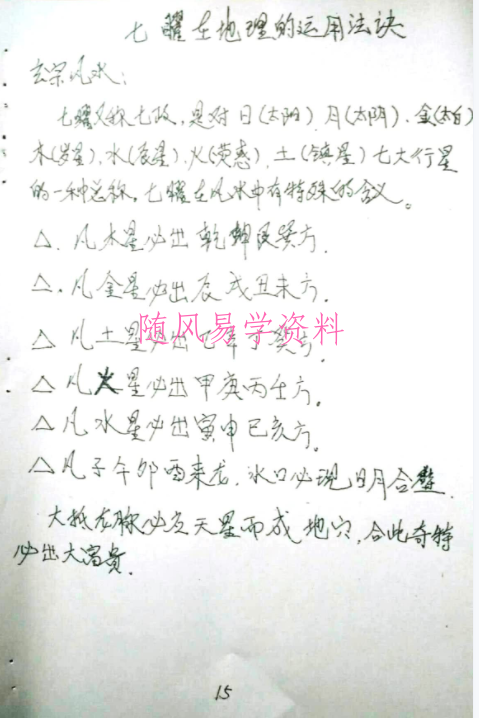 七曜在地理的运用法诀
玄宗风水：
七曜又称七政，是对日(太阳)、月(太阴)、金(太白)
木(岁星)、水(辰星)、火(荧惑)、土(镇星)七大行星
的一种总称。七曜在风水中有特殊的含义。
△. 凡木星必出乾坤艮巽方.
△. 凡金星必出辰戌丑未方.
随风易学资料
△ 凡土星必出乙辛丁癸方.
△ 凡火星必出甲庚丙壬方。
△ 凡水星必出寅申巳亥方。
△ 凡子午卯酉来龙.水口必现日月合璧.
大抵龙脉必交天星而成地穴,合此奇特
必出大富贵.
15